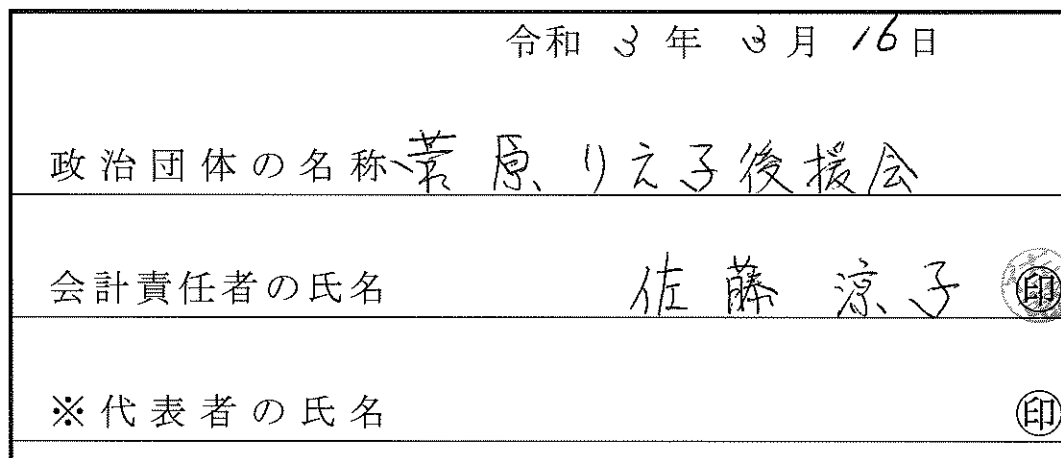 令和 3 年 3 月 16 日
政治団体の名称 菅原りえ子後援会
会計責任者の氏名 佐藤 涼子 ㊞
※代表者の氏名 ㊞